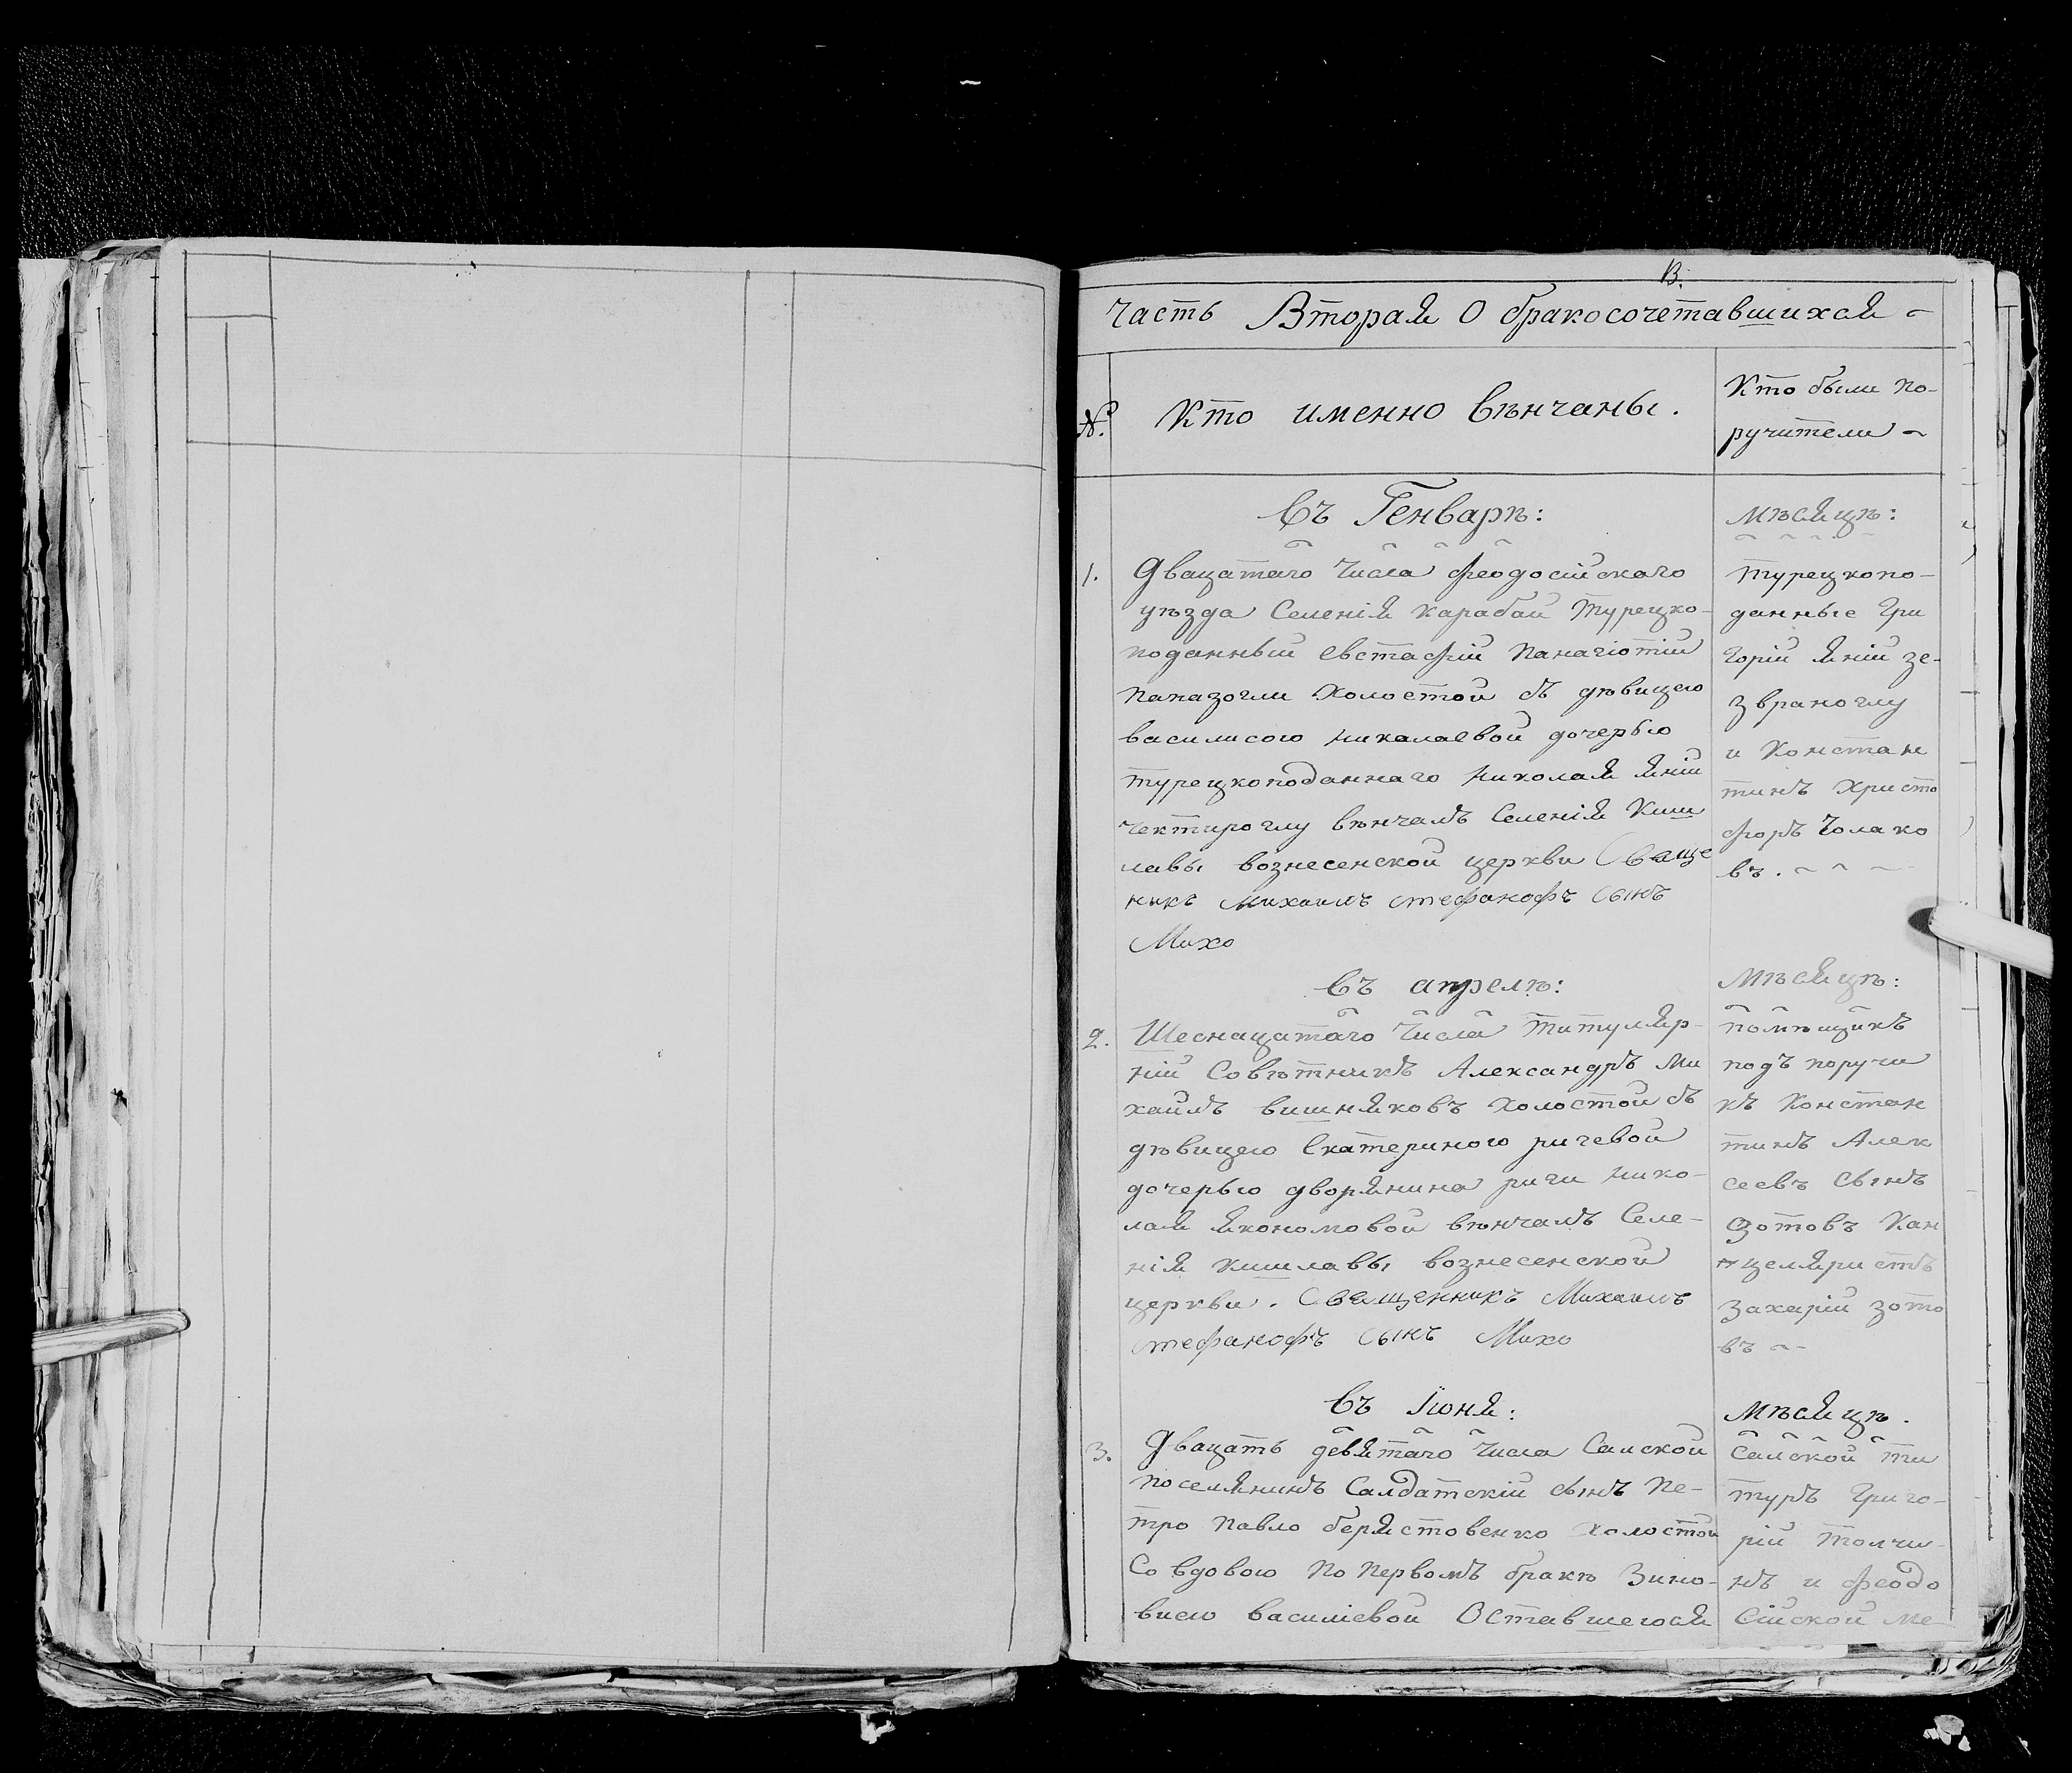 В.
Часть Вторая О бракосочетавшихся
№.
Кто именно вѣнчаны.
Кто были по-
ручители
въ Генварѣ:
1. Двацатаго числа феодосійскаго
уѣзда Селенія карабай турецко-
поданный евстафій панагіотій
паназогли холостой съ дѣвицею
василисою николаевой дочерью
турецкоподаннаго николая яній
чектироглу вѣнчалъ Селенія Киш
лавы вознесенской церкви Свяще
никъ Михаилъ стефанофъ сынъ
Михо
мѣсяцѣ:
турецкопо-
данные Гри
горій яній зе-
звраноглу
и Констан
тинъ Христо
форъ Чолако
въ.
въ апрелѣ:
2. Шеснацатаго числа титуляр-
ній Совѣтникъ Александръ Ми
хаилъ вишняковъ холостой съ
дѣвицею Екатериною ригевой
дочерью дворянина риги нико-
лая якономовой вѣнчалъ Селе-
нія кишлавы вознесенской
церкви. Священникъ Михаилъ
стефанофъ сынъ Михо
Мѣсяцѣ:
помѣщикъ
подъ поручи
къ Констан
тинъ Алек
сеевъ сынъ
Зотовъ Кан
целяристъ
Захарій зото
въ
въ Іюня:
3. Двацать девятаго числа Самской
поселянинъ Салдатскій сынъ Пе-
тро павло берястовенко холостой
Со вдовою по первомъ бракѣ Зино-
виею василіевой Оставшегося
Мѣсяцѣ.
Самской ти
туръ Григо-
рій толчи-
нъ и феодо
сійской ме-